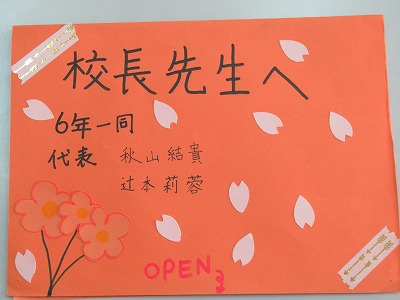 校長先生へ
6年一同
代表 秋山結貴
辻本莉蓉
OPEN